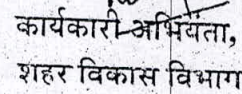 कार्यकारी अभियंता,
शहर विकास विभाग